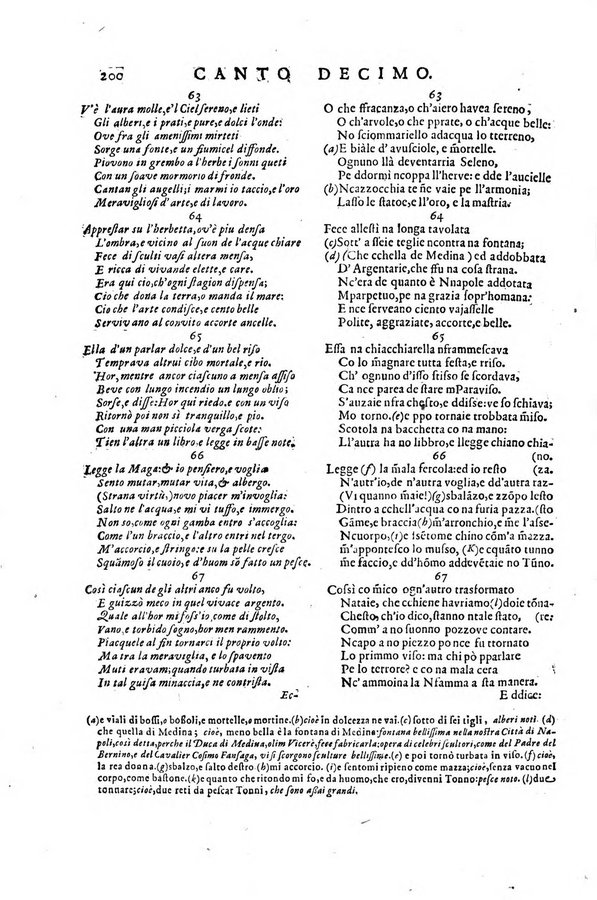 200 CANTO DECIMO.
63
V'è l'aura molle,e'l Ciel sereno,e lieti
Gli alberi,e i prati,e pure,e dolci l'onde:
Ove fra gli amenissimi mirteti
Sorge una fonte,e un fiumicel diffonde.
Piovono in grembo a l'herbe i sonni queti
Con un soave mormorio di fronde.
Cantan gli augelli;i marmi io taccio,e l'oro
Meravigliosi d'arte,e di lavoro.
64
Apprestar su l'herbetta,ov'è piu densa
L'ombra,e vicino al suon de l'acque chiare
Fece di sculti vasi altera mensa,
E ricca di vivande elette,e care.
Era qui ciò,ch'ogni stagion dispensa;
Cio che dona la terra,o manda il mare:
Ciò che l'arte condisce,e cento belle
Servivano al convito accorte ancelle.
65
Ella d'un parlar dolce,e d'un bel riso
Temprava altrui cibo mortale,e rio.
Hor,mentre ancor ciascuno a mensa assiso
Beve con lungo incendio un lungo oblio;
Sorse,e disse:Hor qui riedo.e con un viso
Ritornò poi non sì tranquillo,e pio.
Con una man picciola verga scote:
Tien l'altra un libro,e legge in basse note.
66
Legge la Maga:& io pensiero,e voglia
Sento mutar,mutar vita,& albergo.
(Strana virtù,)novo piacer m'invoglia:
Salto ne l'acqua,e mi vi tuffo,e immergo.
Non so,come ogni gamba entro s'accoglia:
Come l'un braccio,e l'altro entri nel tergo.
M'accorcio,e stringo:e su la pelle cresce
Squāmoso il cuoio,e d'huom sō fatto un pesce.
67
Così ciascun de gli altri anco fu volto,
E guizzò meco in quel vivace argento.
Quale all'hor mi foss'io,come di stolto,
Vano,e torbido sogno,hor men rammento.
Piacquele al fin tornarci il proprio volto:
Ma tra la meraviglia,e lo spavento
Muti eravam;quando turbata in vista
In tal guisa minaccia,e ne contrista.
Ec-
63
O che ffracanza,o ch'aiero havea sereno,
O ch'arvole,o che pprate,o ch'acque belle:
No sciommariello adacqua lo tterreno,
(a)E biàle d'avusciole,e m̄ortelle.
Ognuno llà deventarria Seleno,
Pe ddormi ncoppa ll'herve: e dde l'aucielle
(b)Ncazzocchia te n̄e vaie pe ll'armonia;
Lasso le statoe,e ll'oro,e la mastria.
64
Fece allesti na longa tavolata
(c)Sott' a sseie teglie ncontra na fontana;
(d)(Che cchella de Medina) ed addobbata
D'Argentarie,che ssu na cosa strana.
Nc'era de quanto è Nnapole addotata
Mparpetuo,pe na grazia sopr'homana:
E nce serveano ciento vajasselle
Polite,aggraziate,accorte,e belle.
65
Essa na chiacchiarella nframmescava
Co lo magnare tutta festa,e rriso.
Ch' ognuno d'isso stisso se scordava,
Ca nce parea de stare mParaviso.
S'auzaie nfra chesto,e ddisse:ve so schiava;
Mo torno.(e)e ppo tornaie trobbata m̄iso.
Scotola na bacchetta co na mano:
Ll'autra ha no libbro,e llegge chiano chia-
(no.
66
Legge (f) la m̄ala fercola:ed io resto (za.
N'autr'io,de n'autra voglia,e d'autra raz-
(Vi quanno m̄aie!)(g)sbalàzo,e zzōpo lesto
Dintro a cchell'acqua co na furia pazza.(sto
Gām̄e,e braccia(h)m'arronchio,e me ll'asse-
Ncuorpo,(i)e me seTome chino com'a m̄azza.
m̄'appontesco lo musso, (K)e cquāto tunno
m̄e faccio,e dd'hōmo addevētaie no Tūno.
67
Cossì co m̄ico ogn'autro trasformato
Nataie, che cchiene havriamo(l)doie tōna-
Chesto,ch'io dico,stanno ntale stato, (re:
Comm' a no suonno pozzove contare.
Ncapo a no piezzo po nce fu ttornato
Lo primmo viso: ma chi pò pparlare
Pe lo terrore? e co na mala cera
Nc'ammoina la Nfamma a sta manera.
E ddice:
(a)e viali di bossi,o bossoli,e mortelle,o mortine.(b)cioè in dolcezza ne vai.(c)sotto di sei tigli, alberi noti.(d)
che quella di Medina; cioè, meno bella è la fontana di Medina:fontana bellissima nella nostra Città di Na-
poli,così detta,perche il Duca di Medina,olim Vicerè,fece fabricarla;opera di celebri scultori,come del Padre del
Bernino,e del Cavalier Cosimo Fansaga, vi si scorgono sculture bellissime.(e) e poi tornò turbata in viso.(f) cioè,
la rea donna.(g)sbalzo,e salto destro (h)mi accorcio. (i)e sentomi ripieno come mazza;cioè,senza vacuo nel
corpo,come bastone.(k)e quanto che ritondo mi fo,e da huomo,che ero,divenni Tonno:pesce noto. (l)due
tonnare;cioè, due reti da pescar Tonni, che sono assai grandi.